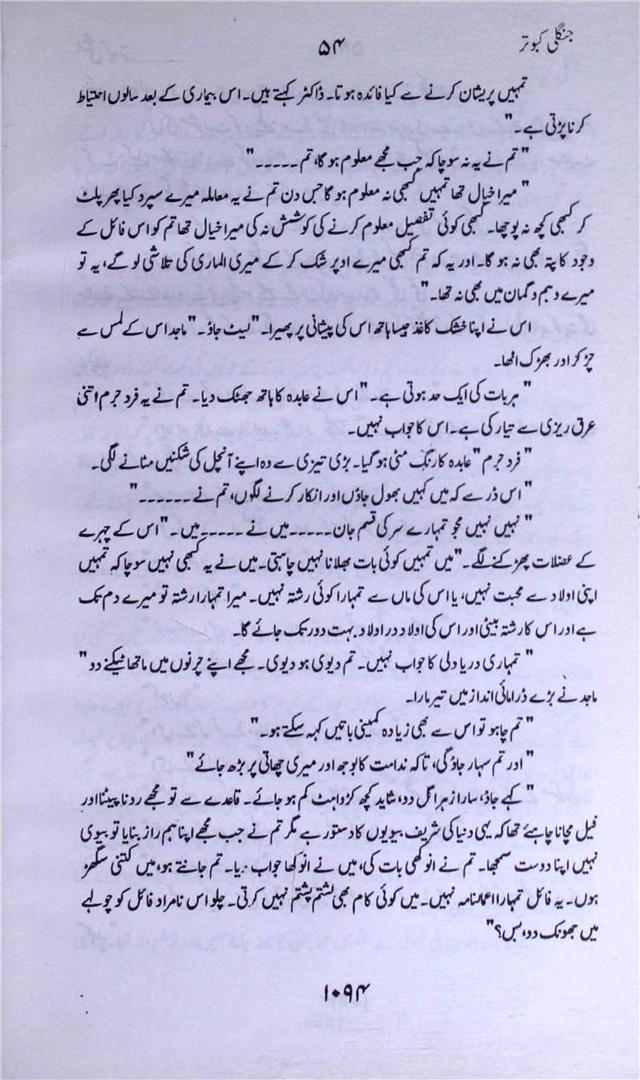 جنگلی کبوتر
۵۴
تمہیں پریشان کرنے سے کیا فائدہ ہوتا۔ ڈاکٹر کہتے ہیں۔ اس بیماری کے بعد سالوں احتیاط
کرنا پڑتی ہے۔"
"تم نے یہ نہ سوچا کہ جب مجھے معلوم ہو گا، تم ۔۔۔۔۔"
"میرا خیال تھا تمہیں کبھی نہ معلوم ہو گا جس دن تم نے یہ معاملہ میرے سپرد کیا پھر پلٹ
کر کبھی کچھ نہ پوچھا۔ کبھی کوئی تفصیل معلوم کرنے کی کوشش نہ کی میرا خیال تھا تم کو اس فائل کے
وجود کا پتہ بھی نہ ہو گا۔ اور یہ کہ تم کبھی میرے اوپر شک کر کے میری الماری کی تلاشی لو گے، یہ تو
میرے وہم و گمان میں بھی نہ تھا۔"
اس نے اپنا خشک کاغذ جیسا ہاتھ اس کی پیشانی پر پھیرا۔ "لیٹ جاؤ۔" ماجد اس کے لمس سے
چڑ کر اور بھڑک اٹھا۔
"ہر بات کی ایک حد ہوتی ہے۔" اس نے عابدہ کا ہاتھ جھٹک دیا۔ تم نے یہ فرد جرم اتنی
عرق ریزی سے تیار کی ہے۔ اس کا جواب نہیں۔
"فرد جرم" عابدہ کا رنگ مٹی ہو گیا۔ بڑی تیزی سے وہ اپنے آنچل کی شکنیں مٹانے لگی۔
"اس ڈر سے کہ میں کہیں بھول جاؤں اور انکار کرنے لگوں، تم نے ۔۔۔۔۔۔"
"نہیں نہیں مجو تمہارے سر کی قسم جان ۔۔۔۔۔ میں نے ۔۔۔۔۔ میں۔" اس کے چہرے
کے عضلات پھڑکنے لگے۔ "میں تمہیں کوئی بات بھلانا نہیں چاہتی۔ میں نے یہ کبھی نہیں سوچا کہ تمہیں
اپنی اولاد سے محبت نہیں، یا اس کی ماں سے تمہارا کوئی رشتہ نہیں۔ میرا تمہارا رشتہ تو میرے دم تک
ہے اور اس کا رشتہ بیٹی اور اس کی اولاد در اولاد بہت دور تک جائے گا۔
"تمہاری دریا دلی کا جواب نہیں۔ تم دیوی ہو دیوی۔ مجھے اپنے چرنوں میں ماتھا ٹیکنے دو"
ماجد نے بڑے ڈرامائی انداز میں تیر مارا۔
"تم چاہو تو اس سے بھی زیادہ کمینی باتیں کہہ سکتے ہو۔"
"اور تم سہار جاؤ گی، تاکہ ندامت کا بوجھ اور میری چھاتی پر بڑھ جائے"
"کہے جاؤ، سارا زہر اگل دو، شاید کچھ کڑواہٹ کم ہو جائے۔ قاعدے سے تو مجھے رونا پیٹنا اور
فیل مچانا چاہئے تھا کہ یہی دنیا کی شریف بیویوں کا دستور ہے مگر تم نے جب مجھے اپنا ہم راز بنایا تو بیوی
نہیں اپنا دوست سمجھا۔ تم نے انوکھی بات کی، میں نے انوکھا جواب دیا۔ تم جانتے ہو، میں کتنی سگھڑ
ہوں۔ یہ فائل تمہارا اعمالنامہ نہیں۔ میں کوئی کام بھی لشتم پشتم نہیں کرتی۔ چلو اس نامراد فائل کو چولہے
میں جھونک دو، بس؟"
۱۰۹۴